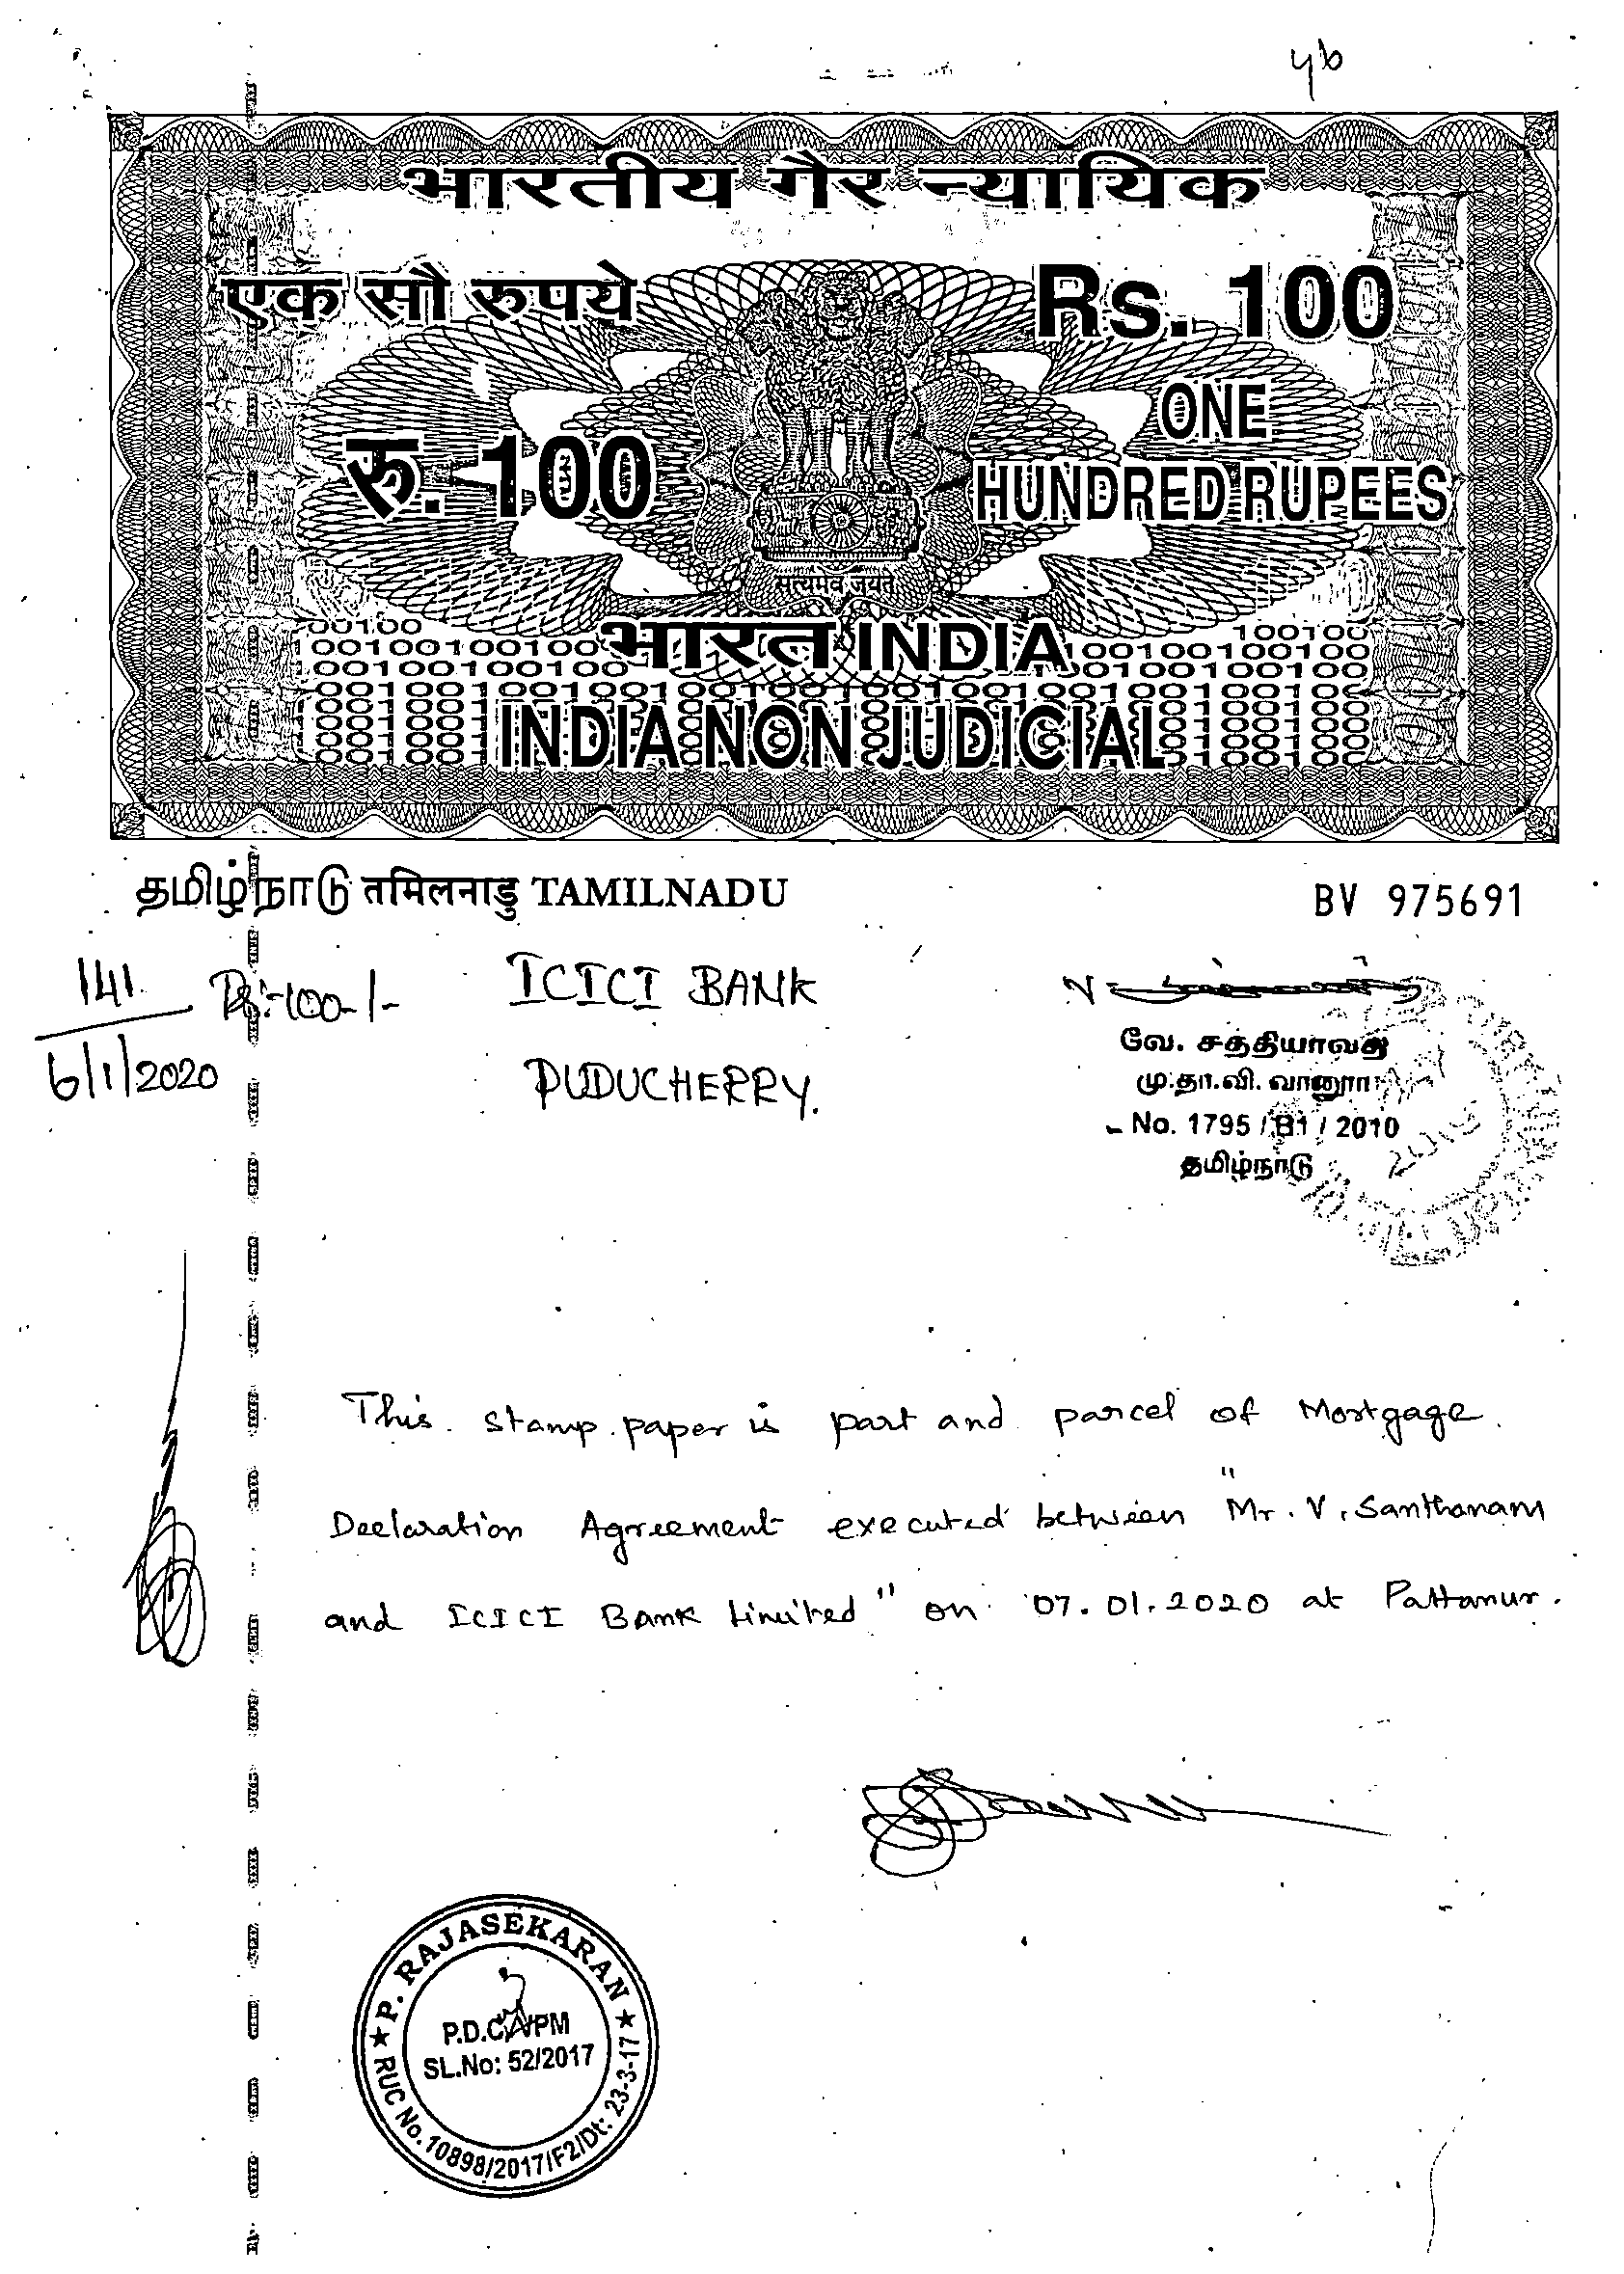 yb
भारतीय गैर न्यायिक
एक सौ रुपये
Rs. 100
रु. 100
ONE
HUNDRED RUPEES
सत्यमेव जयते
भारत INDIA
INDIA NON JUDICIAL
தமிழ்நாடு तमिलनाडु TAMILNADU
BV 975691
141
6/1/2020
Rs:-100-/-
ICICI BANK
PUDUCHERRY.
வே. சத்தியாவதி
மு.தா.வி. வானூர்
No. 1795 / B1 / 2010
தமிழ்நாடு
This stamp paper is part and parcel of Mortgage
Declaration Agreement executed between "Mr. V. Santhanam
and ICICI Bank Limited" on 07.01.2020 at Pattanur.
P. RAJASEKARAN
P.D.C/VPM
SL.No: 52/2017
RUC No. 10898/2017/F2/Dt: 23-3-17